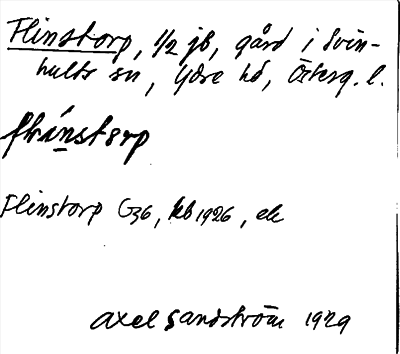 Flinstorp, 1/2 jb, gård i Svin-
hults sn, Ydre hd, Österg. l.
flínstorp
Flinstorp G36, kb 1926, ek
Axel Sandström 1929